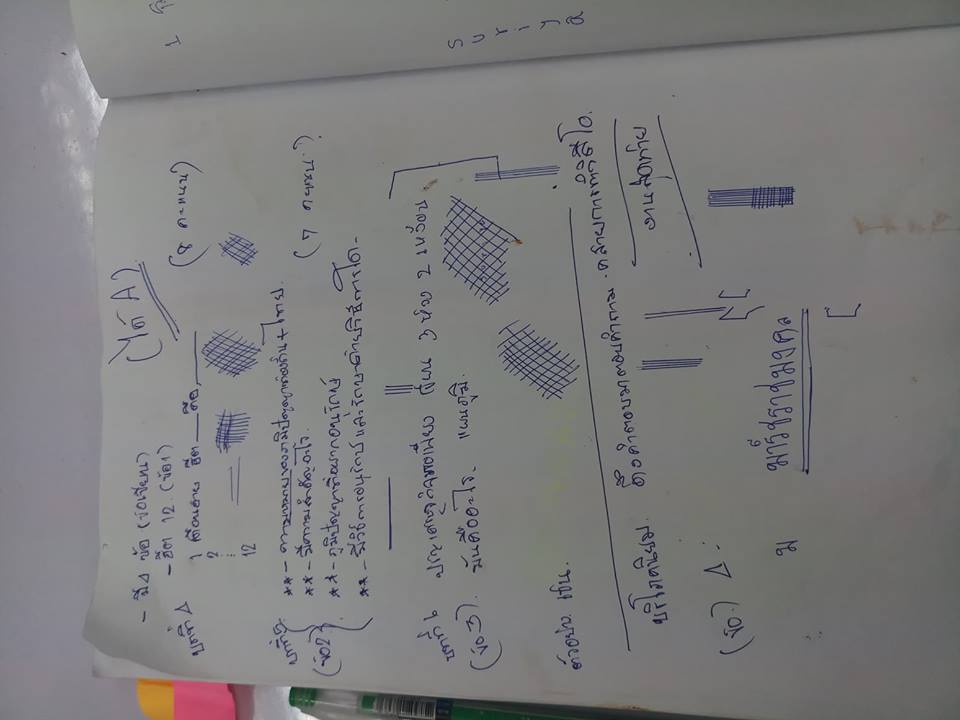 - มี ๔ ข้อ (ข้อเขียน)
(ได้ A).
- ฮีต 12. (ข้อ1)
บทที่ ๔
1 เดือนอ้าย ฮีต ___ คือ, ___
(8 คะแนน)
2
⋮
12
บทที่ 5
** - ความหมายของภูมิปัญญาท้องถิ่น + ไทย.
(ข้อ2)
** - มีความสำคัญอะไร.
(7 คะแนน.)
** - ภูมิปัญญาที่อยากอนุรักษ์
** - มีวิธีการอนุรักษ์และรักษาด้วยวิธีการใด -
บทที่ 6 เศรษฐกิจพอเพียง เขียน 3 ห่วง 2 เงื่อน
(ข้อ.3). มันคืออะไร. แผนภูมิ.
ตัวอย่าง เช่น.
บริโภคนิยม. ดึงคำตอบมาตอบคำถาม. คล้ายการทำวิดีโอ.
งานสุดท้าย
(ข้อ.) ๔.
ม
มาร์ชราชมงคล
1
S
u
r
i
y
a